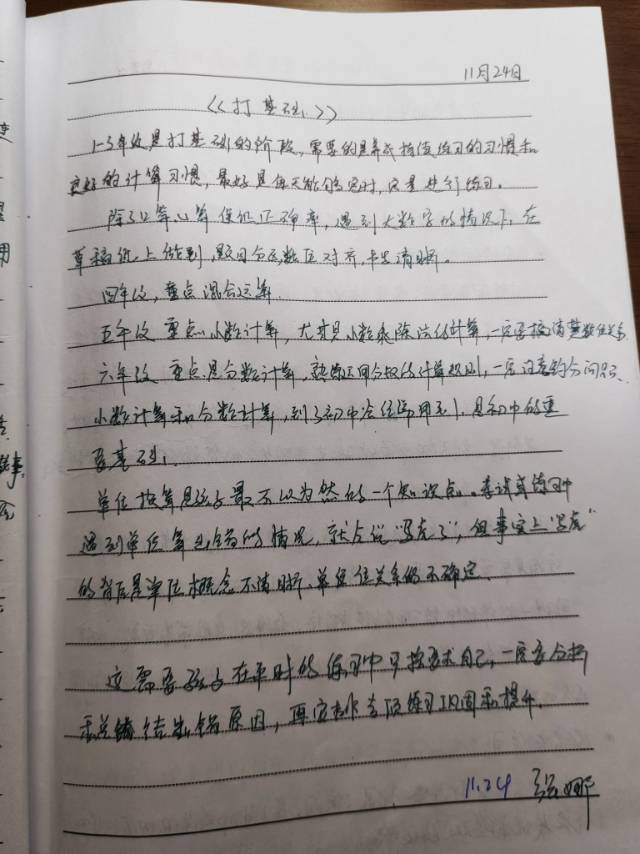 11月24日
《打基础》
1-3年级是打基础的阶段,需要的是养成持续练习的习惯和
良好的计算习惯,最好是每天能够定时,定量进行练习。
除了口算心算保证正确率,遇到大数字的情况下,在
草稿纸上做到,题目分区数位对齐,卡片清晰。
四年级,重点混合运算
五年级 重点小数计算,尤其是小数乘除法的计算,一定要搞清楚数位关系
六年级 重点是分数计算,熟练运用分数的计算规则,一定注意约分问题。
小数计算和分数计算,到了初中会经常用到,是初中的重
要基础,
单位换算是孩子最不以为然的一个知识点。考试或练习中
遇到单位算出错的情况,就会说"马虎了",但事实上"马虎"
的背后是单位概念不清晰、单位关系的不确定。
这需要孩子在平时的练习中严格要求自己,一定要分析
和总结出错原因,再安排专项练习巩固和提升。
11.24 张娜